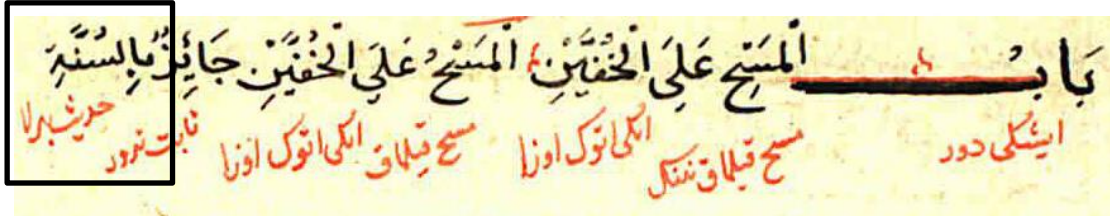 بَابُ الْمَسْحِ عَلَى الْخُفَّيْنِ الْمَسْحُ عَلَى الْخُفَّيْنِ جَائِزٌ بِالسُّنَّةِ
ايشكى دور مسح قيلماق ننكل ايكى اتوك اوزا مسح قيلماق ايكى اتوك اوزا ثابت تورور حديث بيرلا